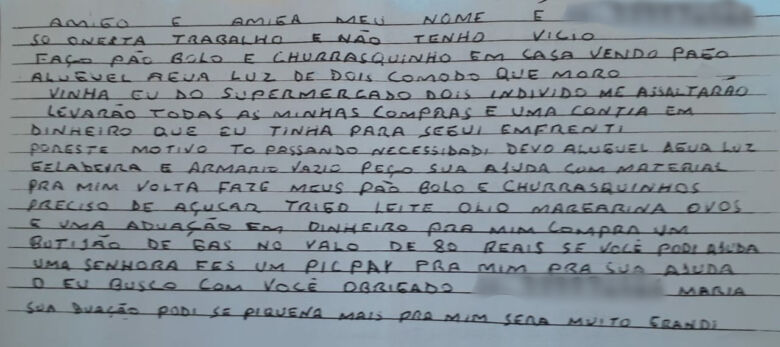 AMIGO E AMIGA MEU NOME É
SO ONESTA TRABALHO E NÃO TENHO VICIO
FAÇO PÃO BOLO E CHURRASQUINHO EM CASA VENDO PAGO
ALUGUEL AGUA LUZ DE DOIS COMODO QUE MORO
VINHA EU DO SUPERMERCADO DOIS INDIVIDO ME ASSALTARÃO
LEVARÃO TODAS AS MINHAS COMPRAS E UMA CONTIA EM
DINHEIRO QUE EU TINHA PARA SEGUI EMFRENTI
PORESTE MOTIVO TO PASSANDO NECESSIDADI DEVO ALUGUEL AGUA LUZ
GELADEIRA E ARMARIO VAZIO PEÇO SUA AJUDA COM MATERIAL
PRA MIM VOLTA FAZE MEUS PÃO BOLO E CHURRASQUINHOS
PRECISO DE AÇUCAR TRIGO LEITE OLIO MARGARINA OVOS
E UMA ADUAÇÃO EM DINHEIRO PRA MIM COMPRA UM
BUTIJÃO DE GAS NO VALO DE 80 REAIS SE VOCÊ PODI AJUDA
UMA SENHORA FES UM PICPAY PRA MIM PRA SUA AJUDA
O EU BUSCO COM VOCÊ OBRIGADO MARIA
SUA DUAÇÃO PODI SE PIQUENA MAIS PRA MIM SERA MUITO GRANDI